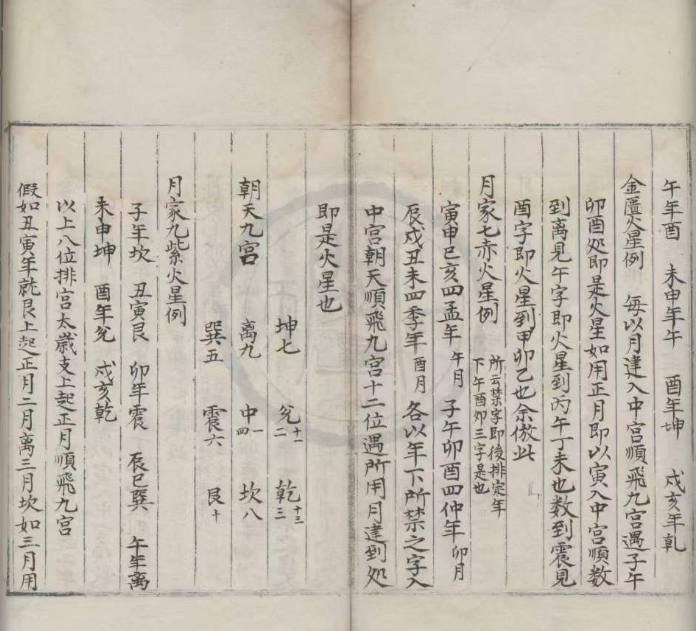 午年酉　未申年午　酉年坤　戌亥年乾
金匱火星例　每以月建入中宮順飛九宮遇子午
卯酉處即是火星如用正月即以寅入中宮順數
到离見午字即火星到丙午丁未也数到震見
酉字即火星到甲卯乙也余倣此
月家七赤火星例　所云禁字即後排定年下午酉卯三字是也
寅申巳亥四孟年午月　子午卯酉四仲年卯月
辰戌丑未四季年酉月　各以年下所禁之字入
中宮朝天順飛九宮十二位遇所用月建到処
即是火星也
坤七　兊二十一　乾三十三
朝天九宮　离九　中四一　坎八
巽五　震六　艮十
月家九紫火星例
子年坎　丑寅艮　卯年震　辰巳巽　午年离
未申坤　酉年兊　戌亥乾
以上八位排宮太歲支上起正月順飛九宮
假如丑寅年就艮上起正月二月离三月坎如三月用